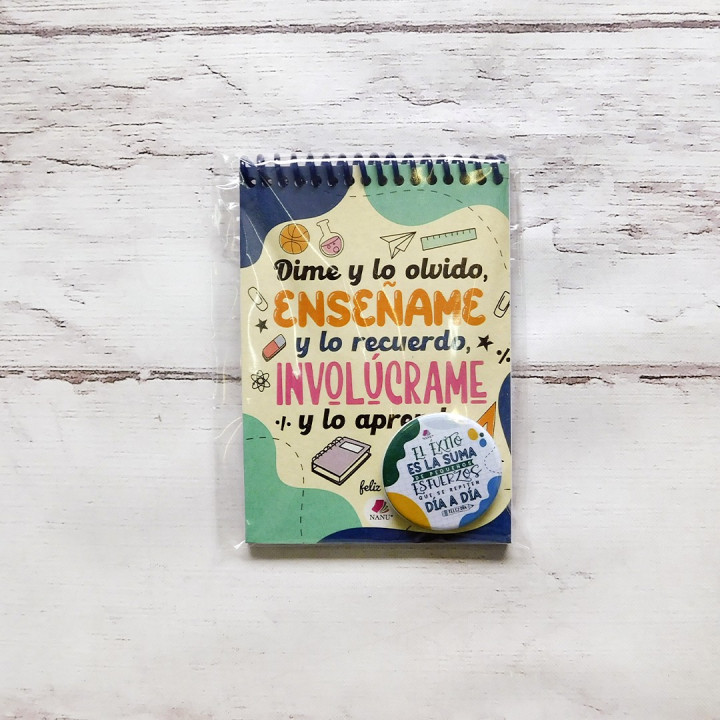 Dime y lo olvido,
ENSEÑAME
y lo recuerdo,
INVOLÚCRAME
y lo
feliz
NANU
EL ÉXITO
ES LA SUMA
DE PEQUEÑOS
ESFUERZOS
QUE SE REPITEN
DÍA A DÍA